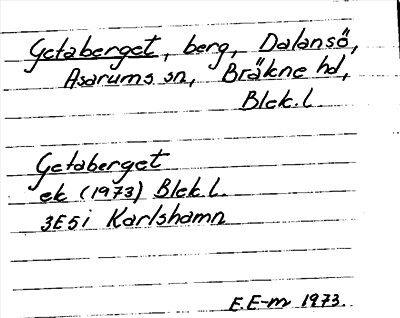 Getaberget, berg, Dalansö,
Asarums sn, Bräkne hd,
Blek.l.
Getaberget
ek (1973) Blek.l.
3E5i Karlshamn
E.E-m 1973.